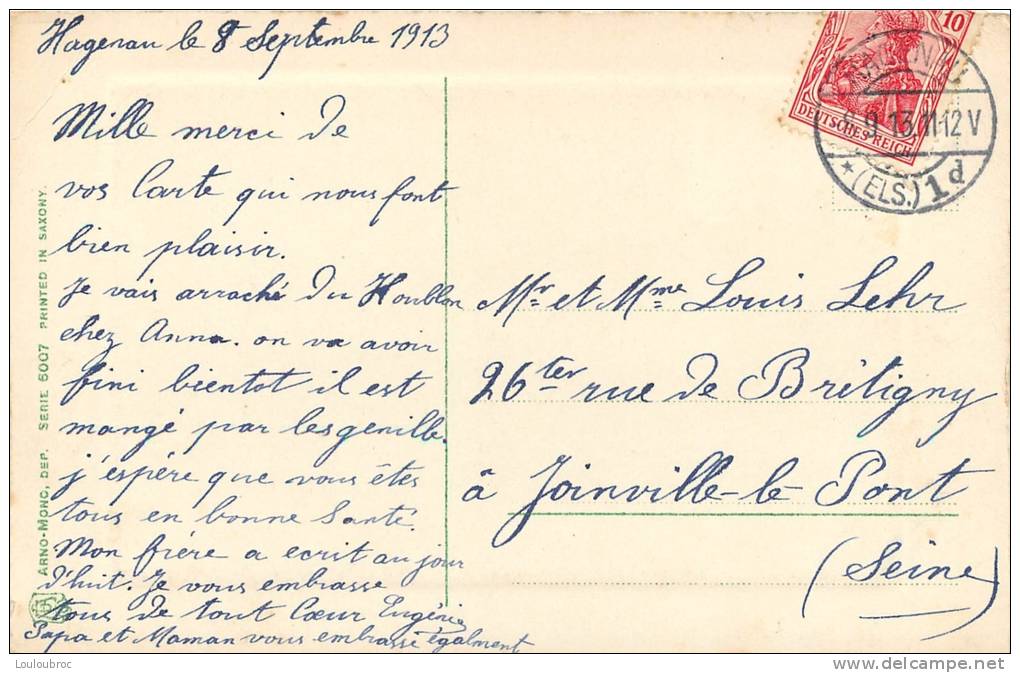 Hagenau le 8 Septembre 1913
Mille merci de
vos Carte qui nous font
bien plaisir.
Je vais arraché du Houblon
chez Anna. on va avoir
fini bientot il est
mangé par les genille.
j'espère que vous êtes
tous en bonne Santé.
Mon frère a ecrit aujour
d'huit. Je vous embrasse
tous de tout Cœur Eugénie
Papa et Maman vous embrasse égalment
10
DEUTSCHES REICH
9.13.11-12 V
* (ELS.) 1d
Mr et Mme Louis Lehr
26ter rue de Brétigny
à Joinville-le-Pont
(Seine)
ARNO-MONO, DEP. SERIE 6007 PRINTED IN SAXONY.
Louloubroc
www.delcampe.net